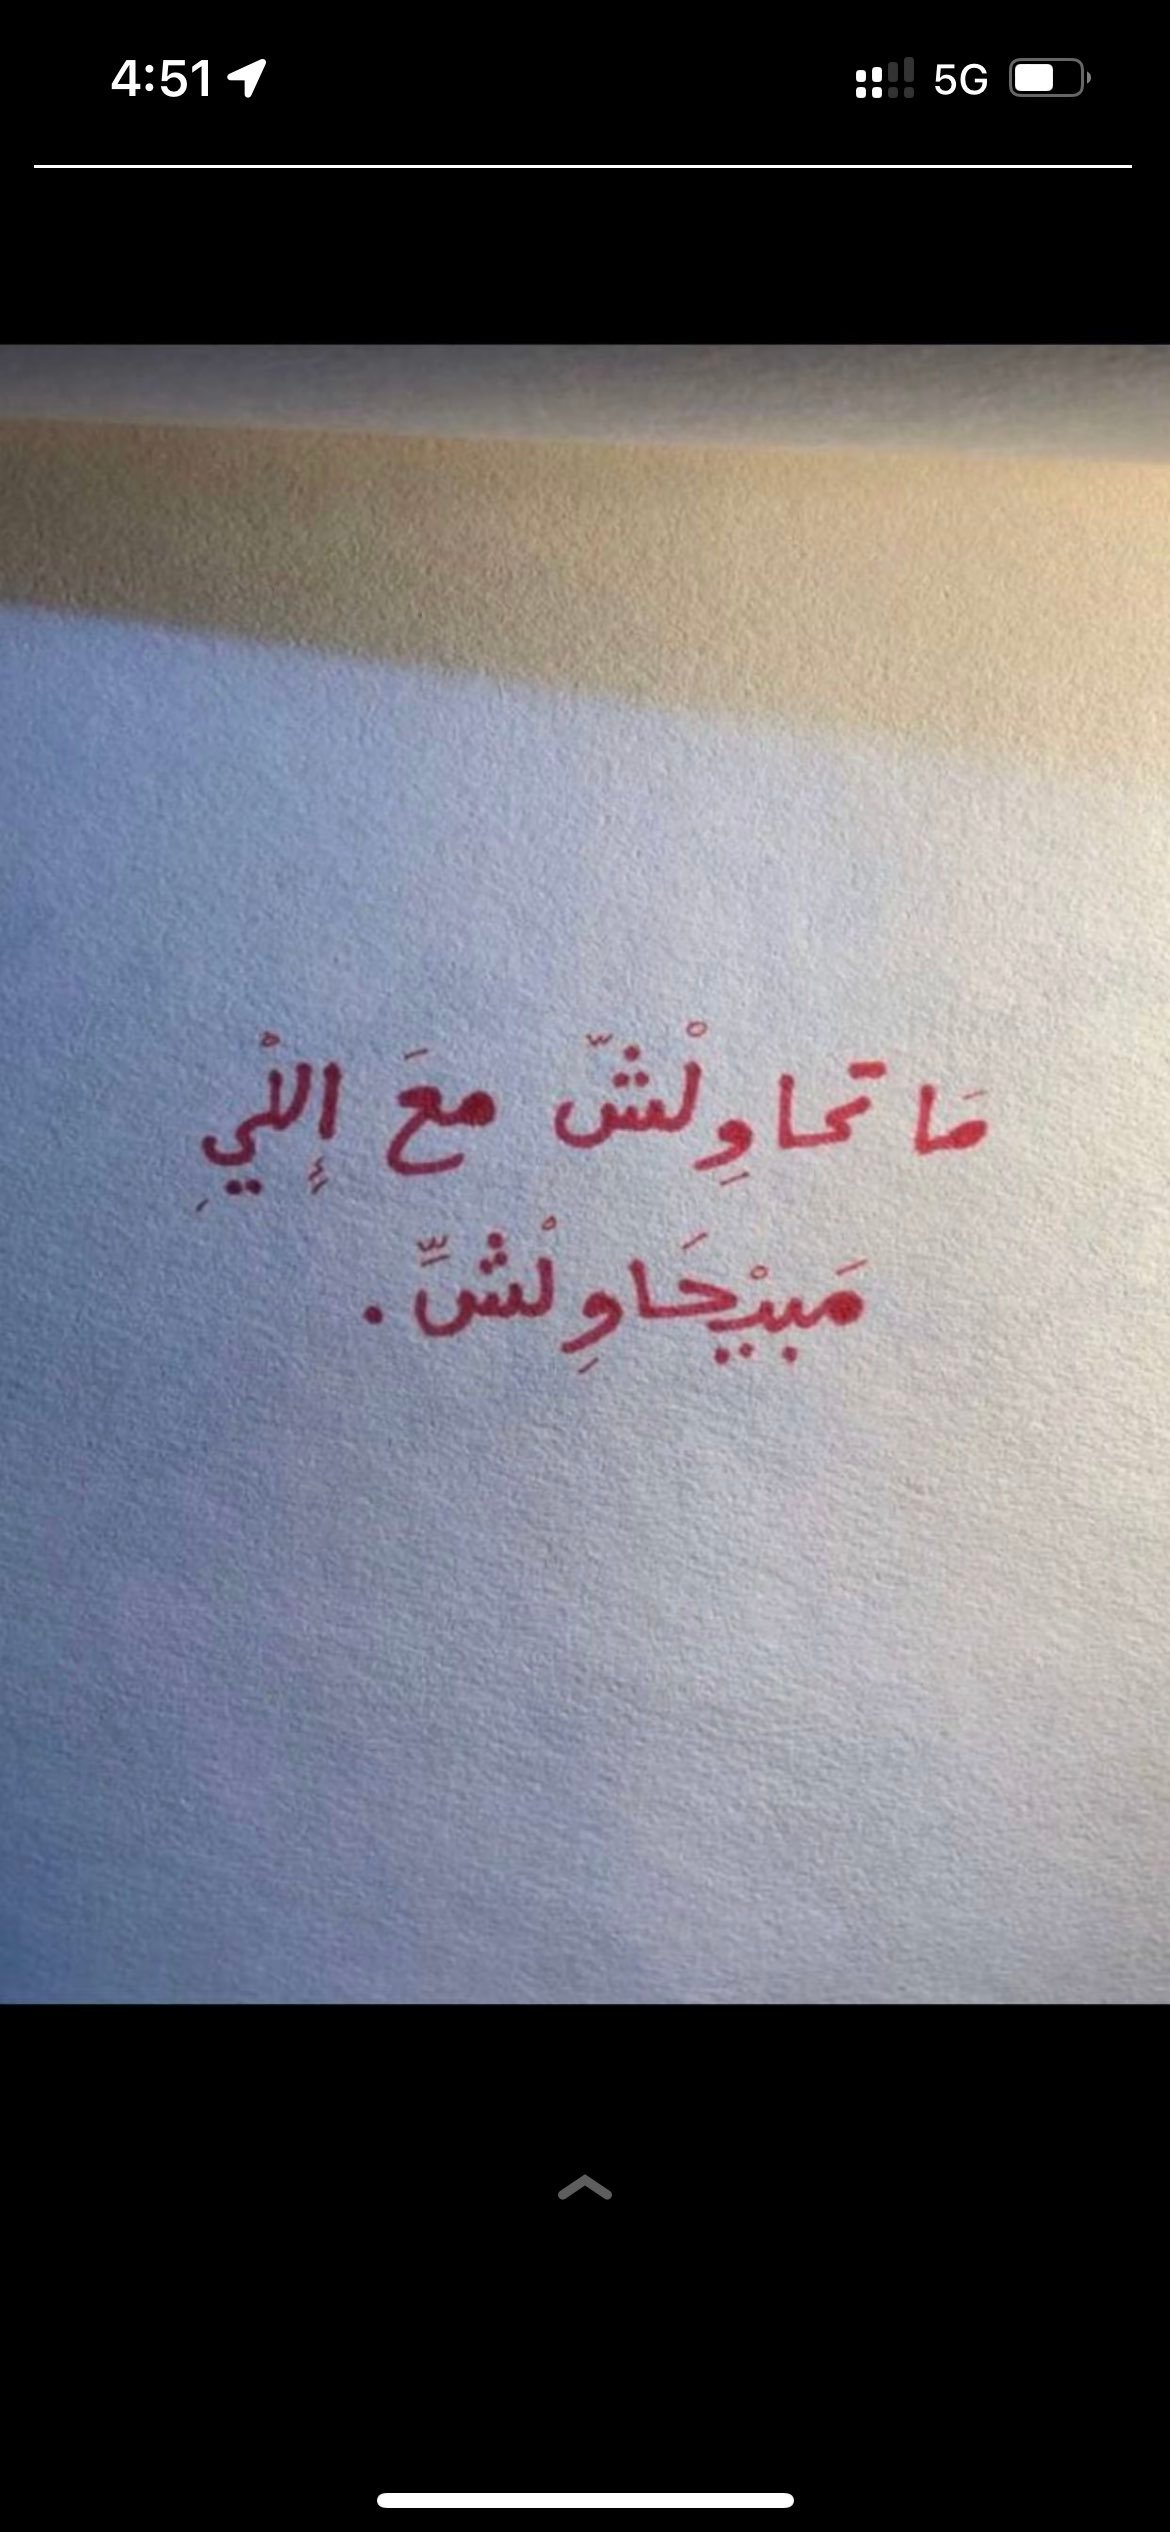 4:51
5G
مَا تحاوِلْشّ معَ إِللْيِ
مَبيْحَاوِلْشِّ .